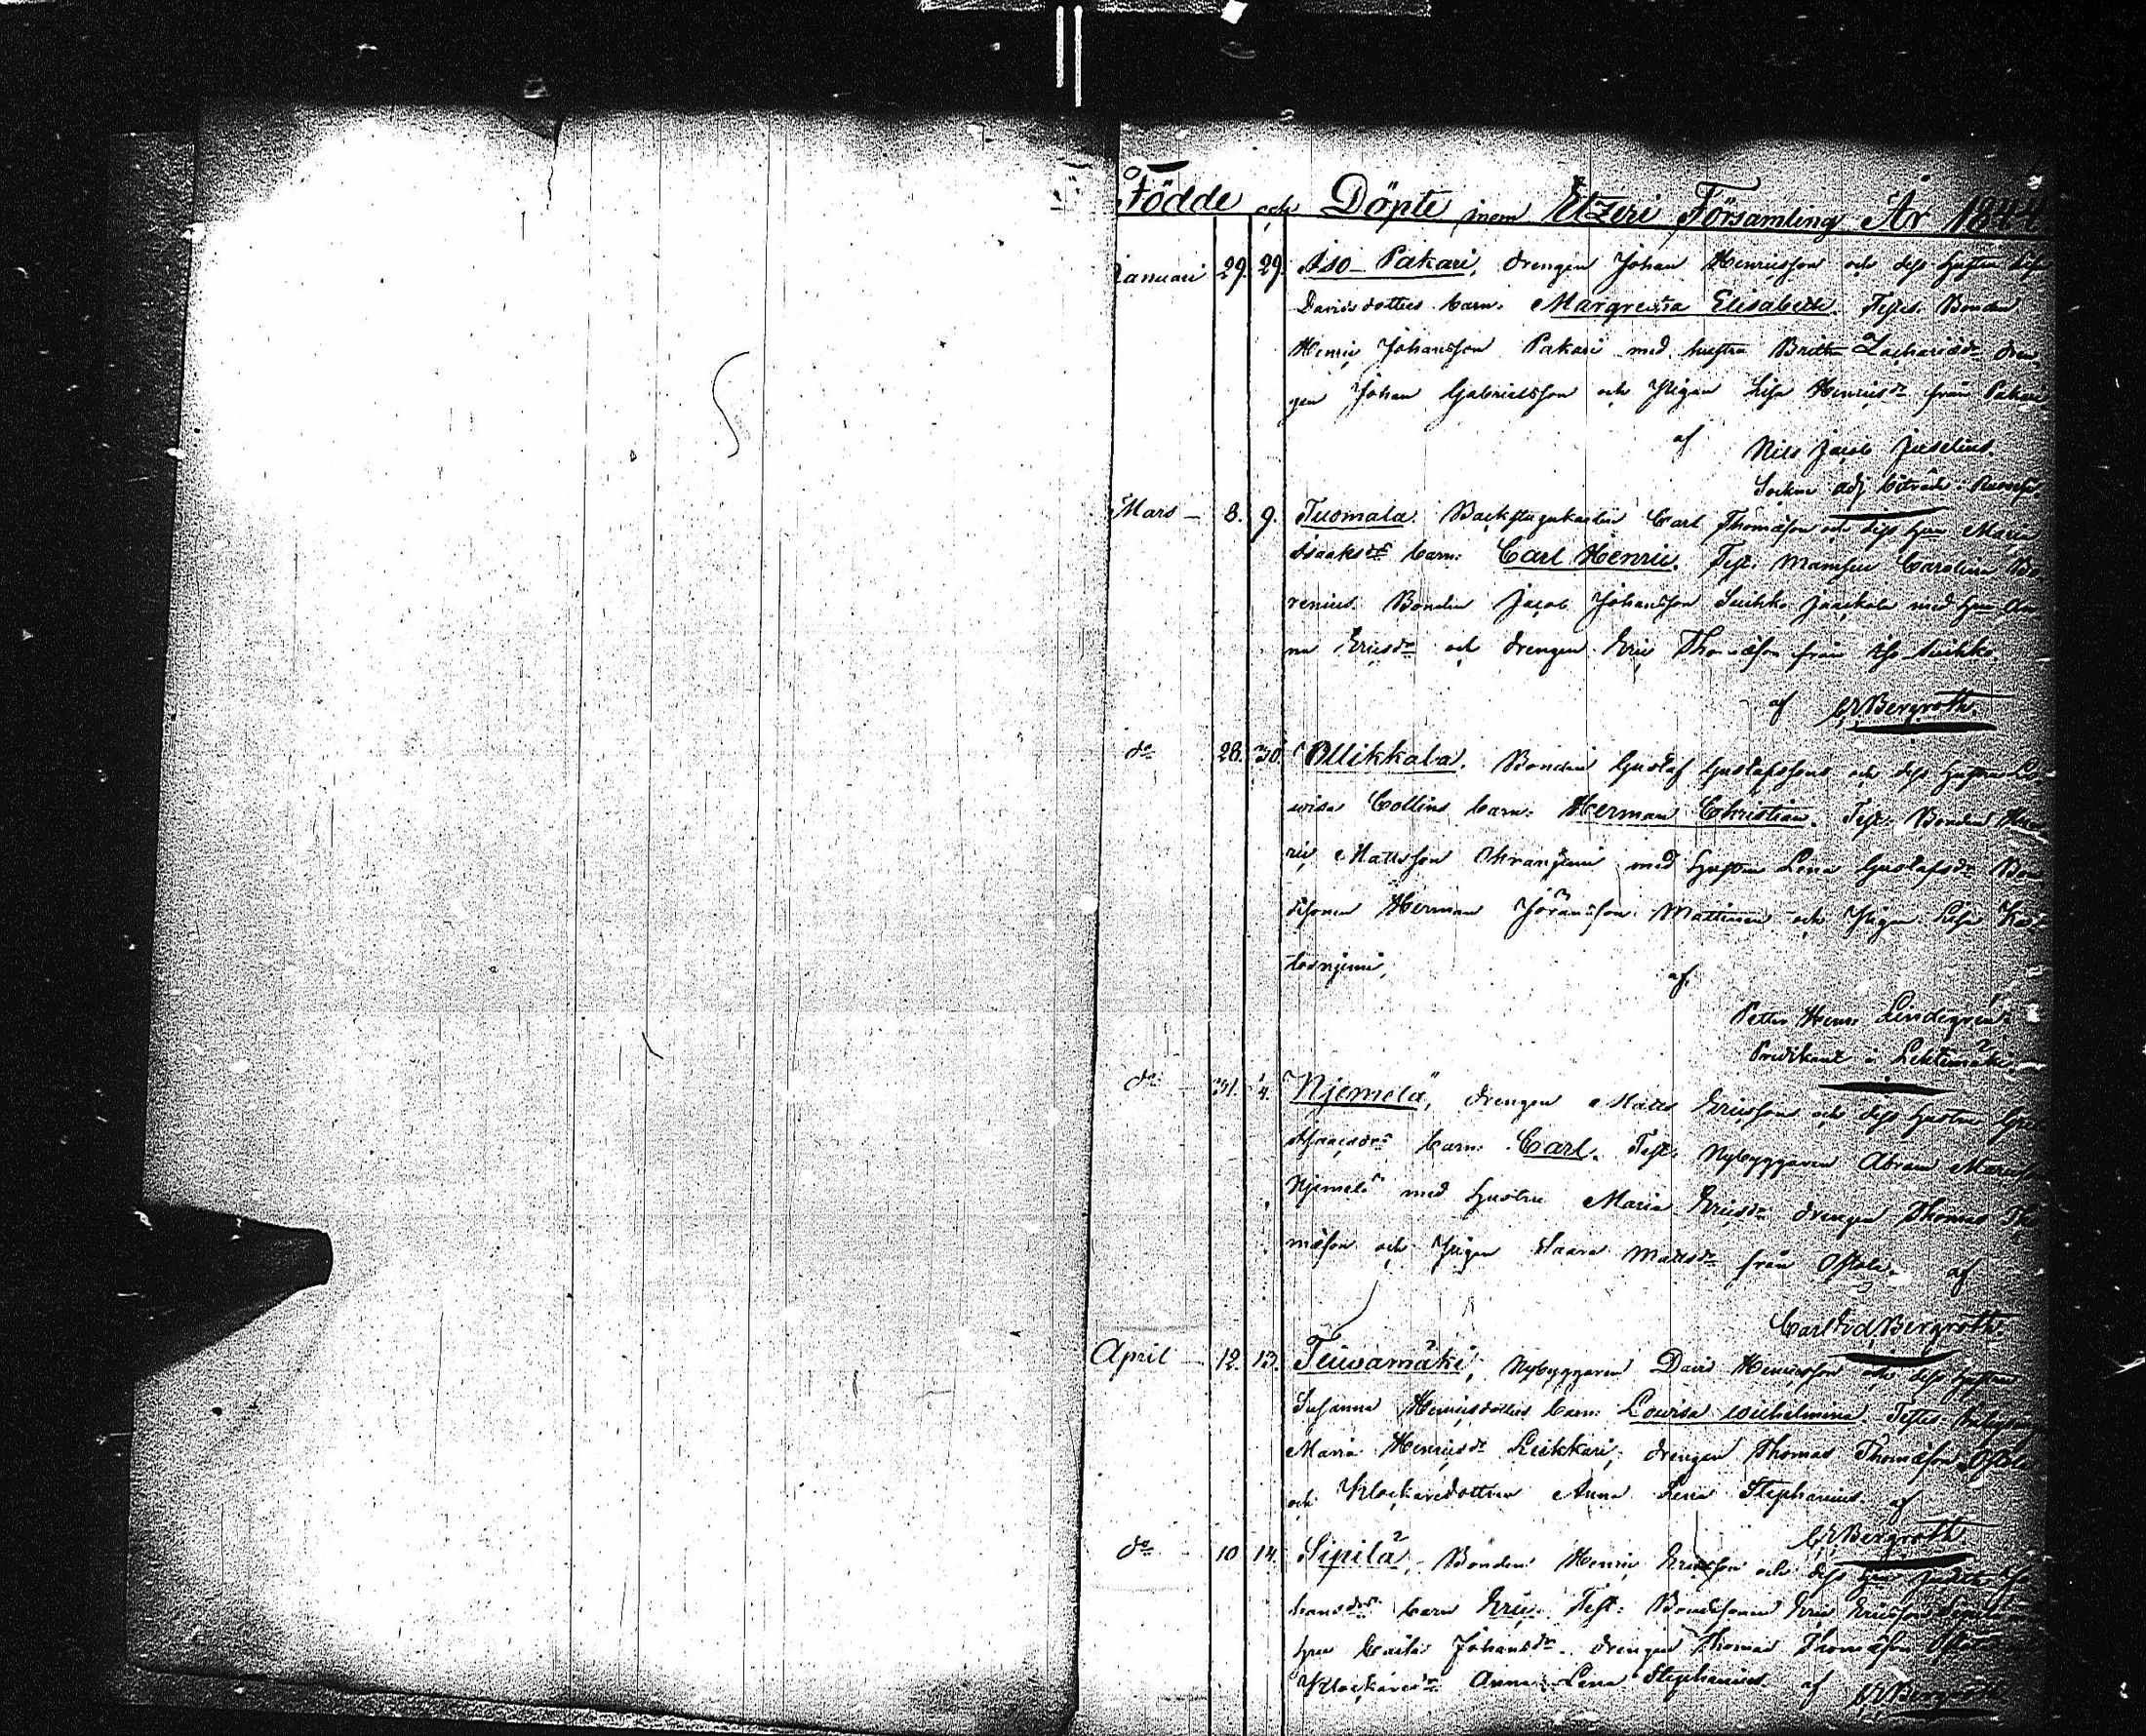 Födde och Döpte inom Etzeri Församling År 1844
Januari 29. 29. Iso-Pakari, drengen Johan Henricsson och dess hustru Lisa
Davidsdotters barn. Margretha Elisabeth. Test. Bonden
Henric Johansson Pakari med hustru Britha Zachariædr dren
gen Johan Gabrielsson och Pigan Lisa Henricsdr från Pakari
af Nils Jacob
Sockne adj
Mars 8. 9. Tuomala. Backstugukarlen Carl Thomasson och dess hru Maria
Isaksdrs barn: Carl Henric. Test: Mamsell Carolina Bo
renius. Bonden Jacob Johansson med hru An
na Ericsdr och drengen Eric Thomasson från
af CEBergroth.
do 28. 30. Ollikkala. Bonden Gustaf Gustafssons och dess hustru Lo
wisa Collins barn: Herman Christian. Test: Bonden Hen
ric Mattsson med hustru Lena Gustafsdr Bon
desonen Herman Göransson Mattinen och Pigan Lisa
af
Petter Henr Lindegrén
Predikant i Lehtimäki
do 31. 4. Njemelä, drengen Matts Ericssons och dess hustru Gre
barn: Carl. Test: Nybyggaren Abram
Njemelä med hustru Maria Ericsdr drengen Thomas Tho
masson och Pigan Saara Mattsdr från Ostola. af
Carl Ed. Bergroth.
April 12. 13. Teiwamäki, Nybyggaren David Henricsson och dess hustru
Susanna Henricsdotters barn: Lowisa Wilhelmina. Testes:
Maria Henricsdr Leikkari, drengen Thomas Thomasson Ostola
och Klockaredottren Anna Lena Stephanius. af
CEBergroth
do 10 14. Sipilä, Bonden Henric Ericsson och dess hru Judith Jo
hansdrs barn Eric. Test: Bondesonen Eric Ericsson Sipilä
hru Caisa Johansdr. drengen Thomas Thomasson Ostola
Klockaredr Anna Lena Stephanius. af CEBergroth